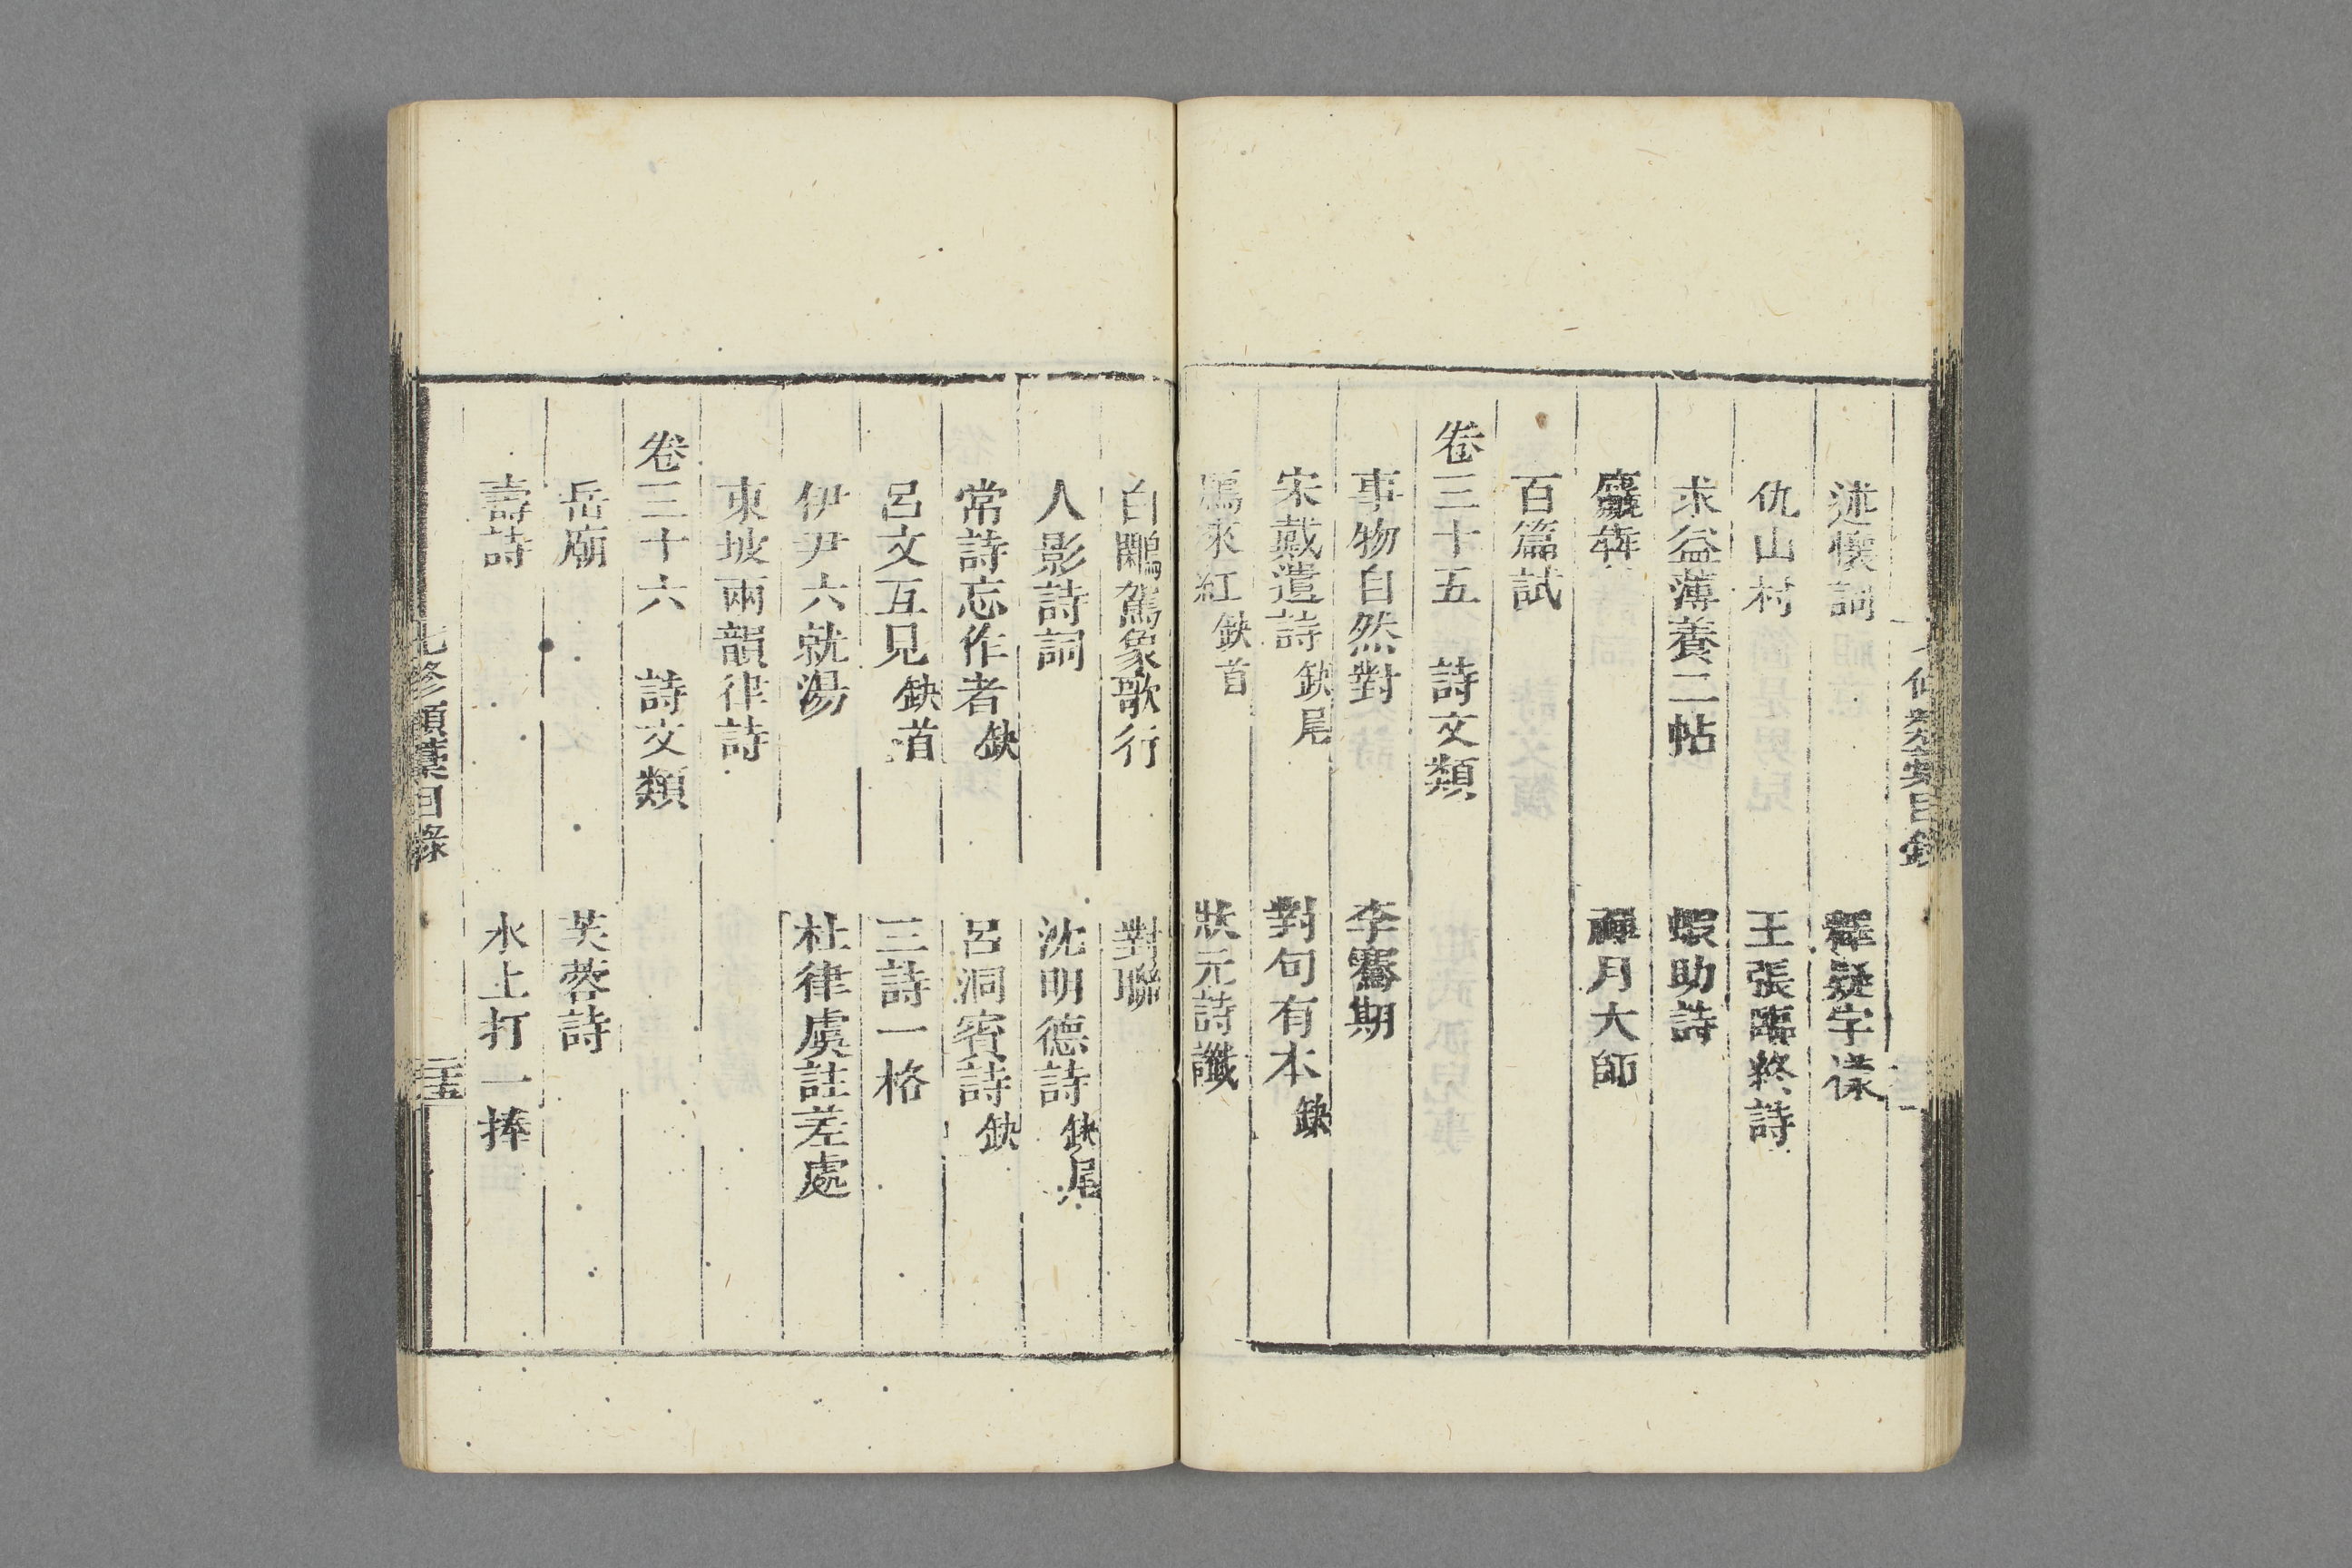 述懷詞　釋疑字㨾
仇山村　王張臨終詩
求益薄養二帖　蝦助詩
犇　禪月大師
百篇試
卷三十五　詩文類
事物自然對　李騫期
宋戴遺詩缺尾　對句有本缺
鴈來紅缺首　狀元詩讖
白鷳駕象歌行　對聯
人影詩詞　沈明德詩缺尾
常詩忘作者缺　呂洞賓詩缺
呂文互見缺首　三詩一格
伊尹六就湯　杜律虞註差處
東坡兩韻律詩
卷三十六　詩文類
岳廟　芙蓉詩
壽詩　水上打一捧
七修類藁目錄　二十五